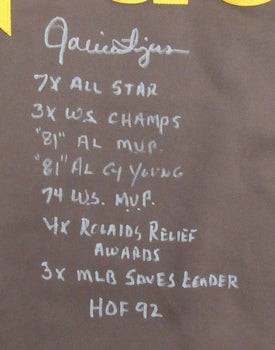 Rollie Fingers
7X ALL STAR
3X W.S. CHAMPS
"81" AL M.V.P.
"81" AL CY YOUNG
74 W.S. M.V.P.
4X ROLAIDS RELIEF
AWARDS
3X MLB SAVES LEADER
HOF 92